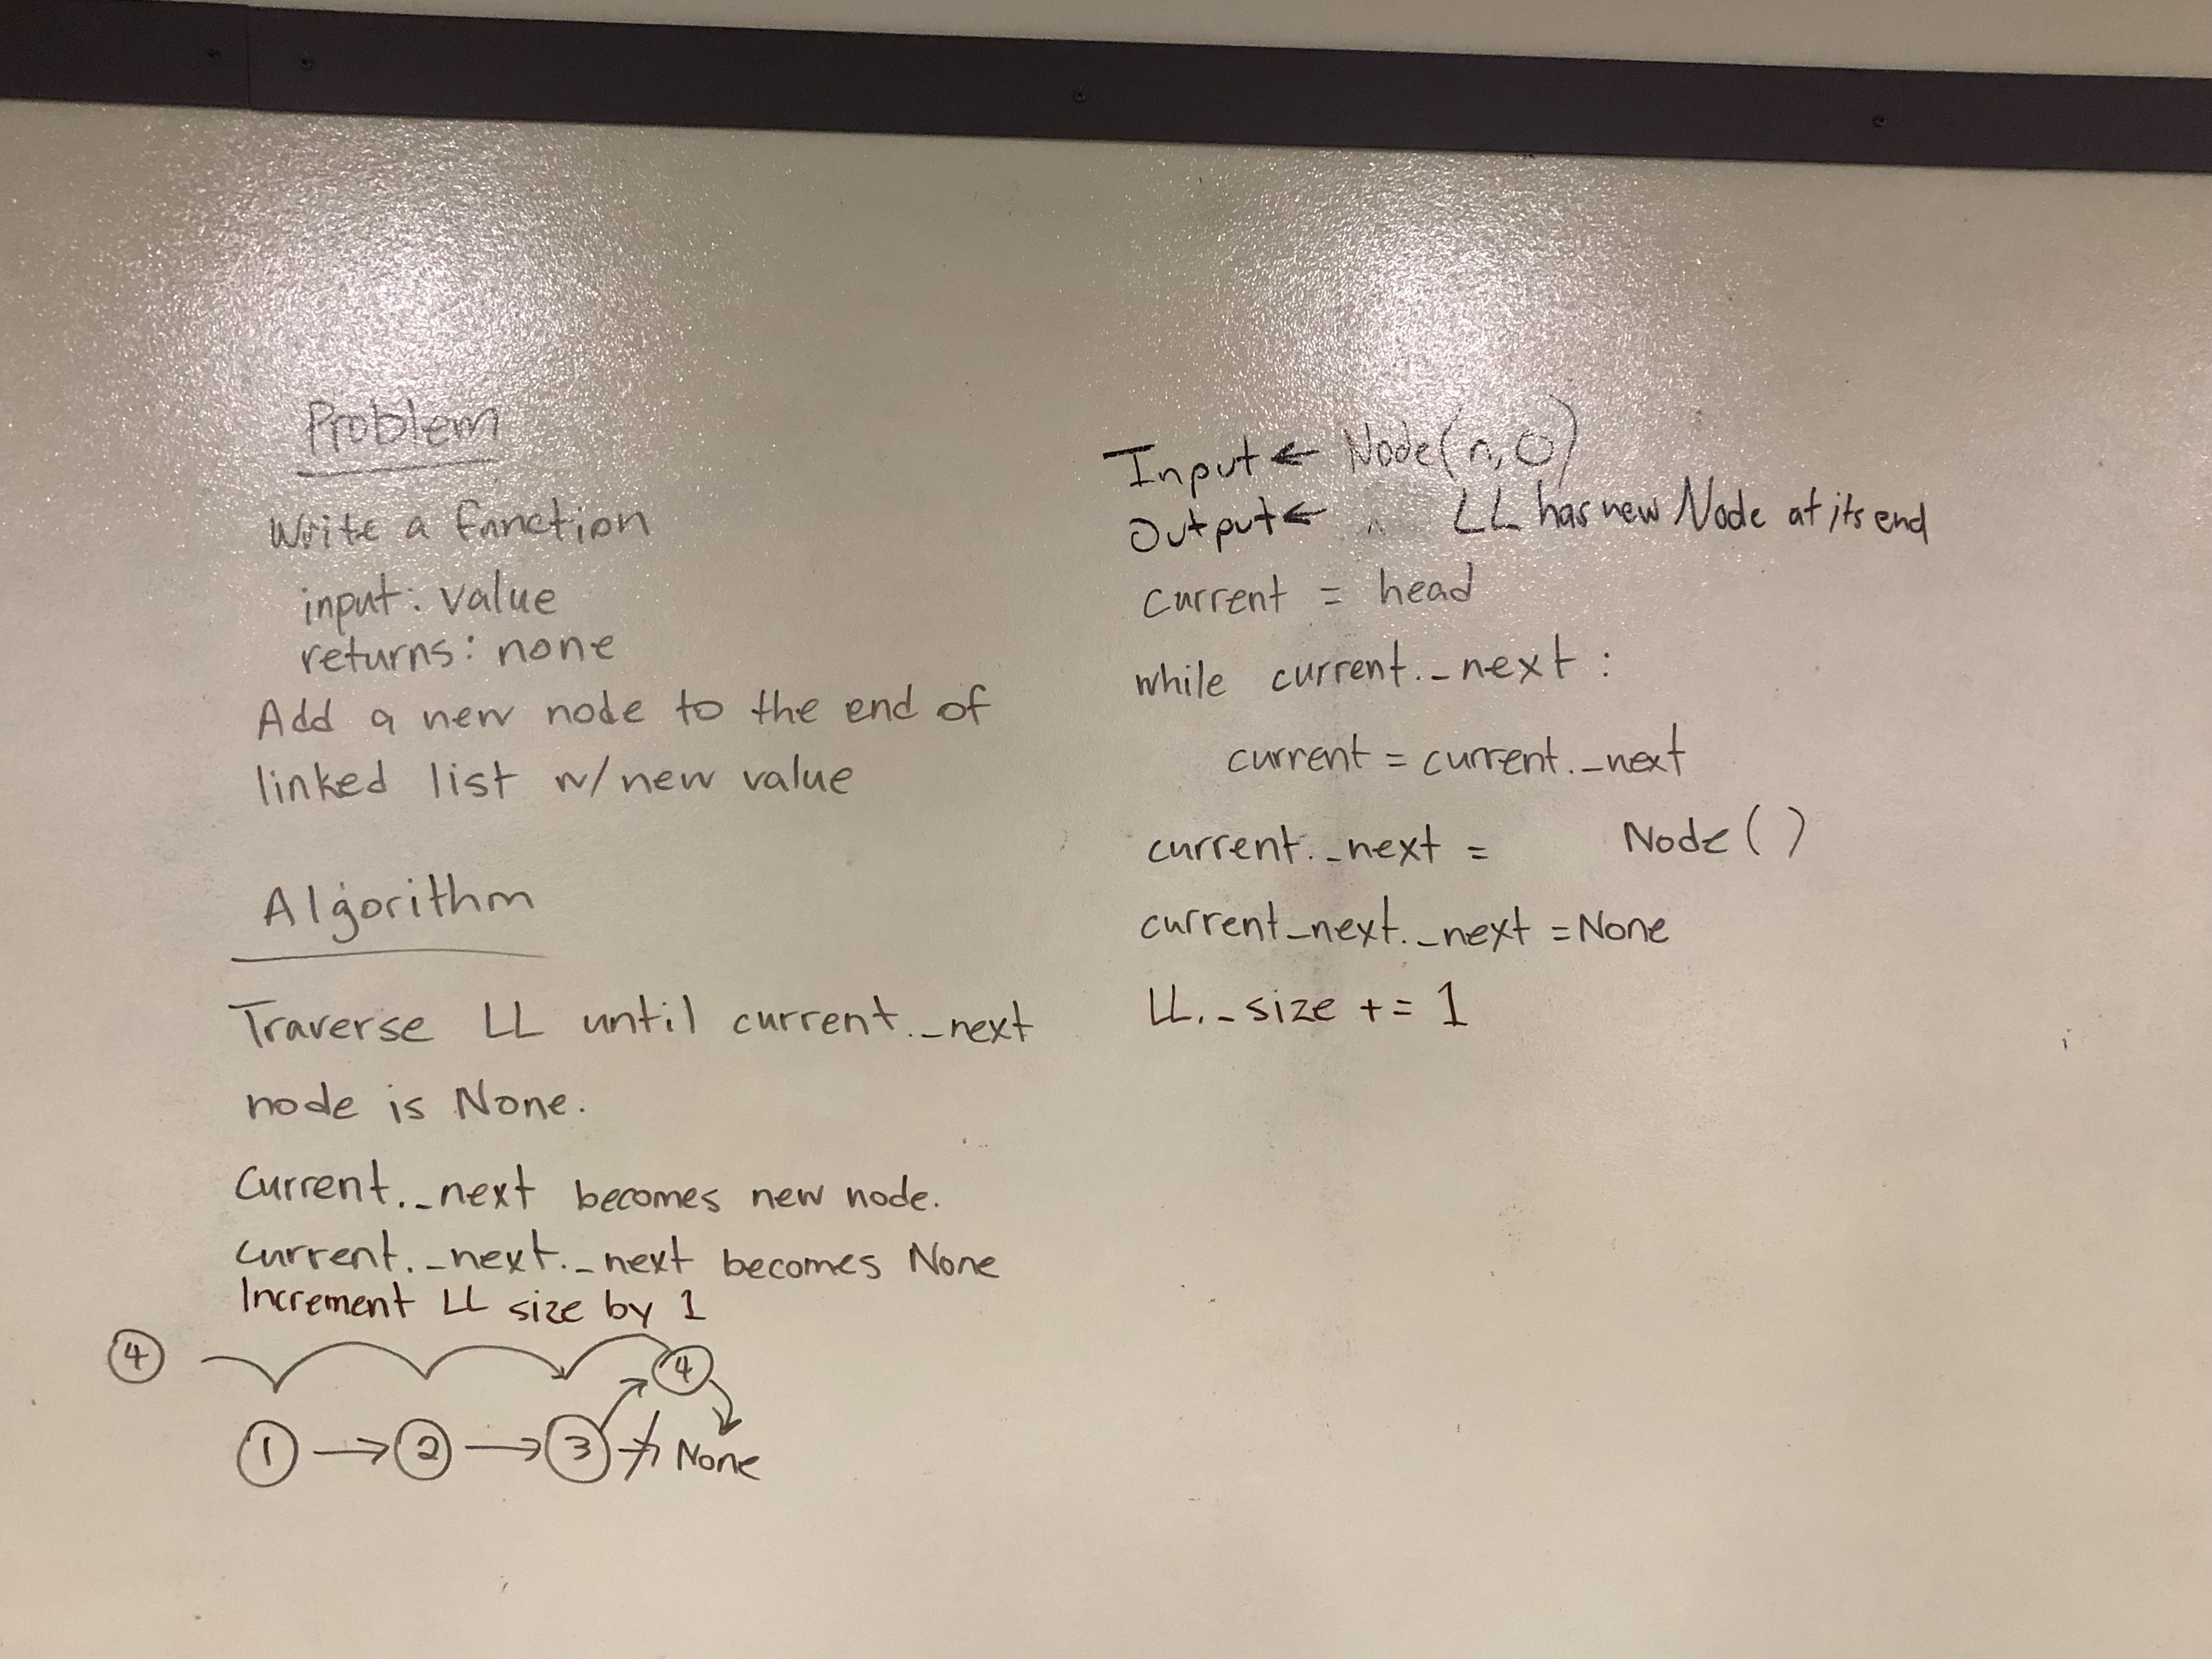 Problem
Write a function
input: value
returns: none
Add a new node to the end of
linked list w/ new value
Algorithm
Traverse LL until current._next
node is None.
Current._next becomes new node.
current._next._next becomes None
Increment LL size by 1
4
4
1 → 2 → 3 → None
Input ← Node(n, 0)
Output ← LL has new Node at its end
current = head
while current._next :
current = current._next
current._next = Node ( )
current_next._next = None
LL._size += 1